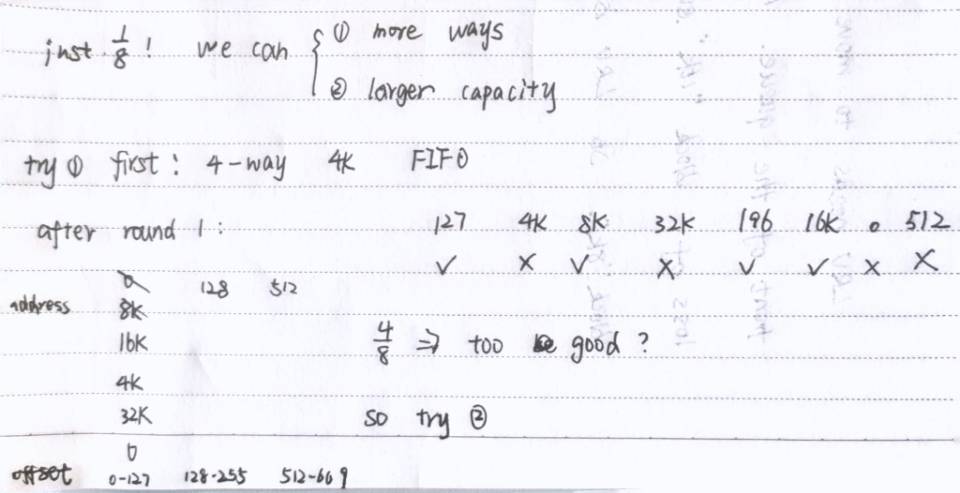 just 1/8 ! we can { ① more ways
② larger capacity
try ① first : 4-way 4K FIFO
after round 1 : 127 4K 8K 32K 196 16K 0 512
✓ X ✓ X ✓ ✓ X X
address 0 128 512
8K
16K 4/8 ⇒ too good ?
4K
32K so try ②
0
offset 0-127 128-255 512-669